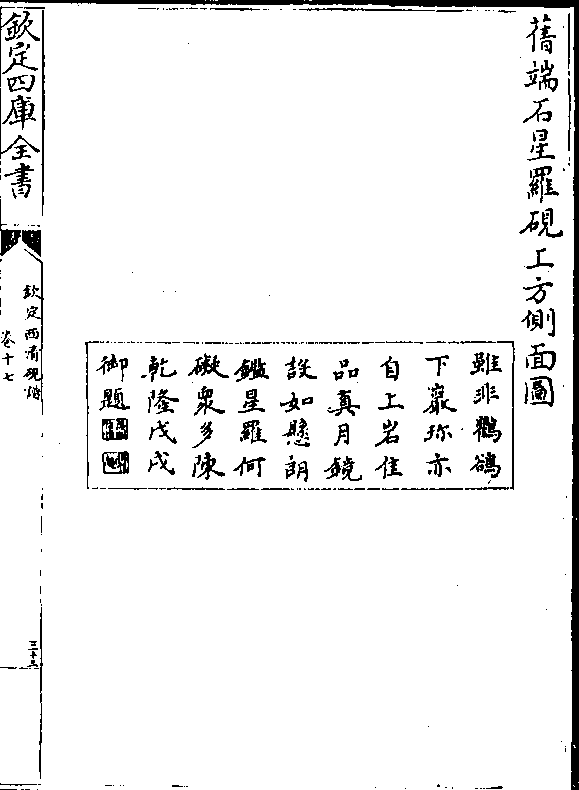 舊端石星羅硯上方側面圖
雖非鸜鵒
下巖珍亦
自上岩佳
品真月鏡
設如懸朗
鑑星羅何
礙衆多陳
乾隆戊戌
御題
欽定四庫全書
欽定西清硯譜
卷十七